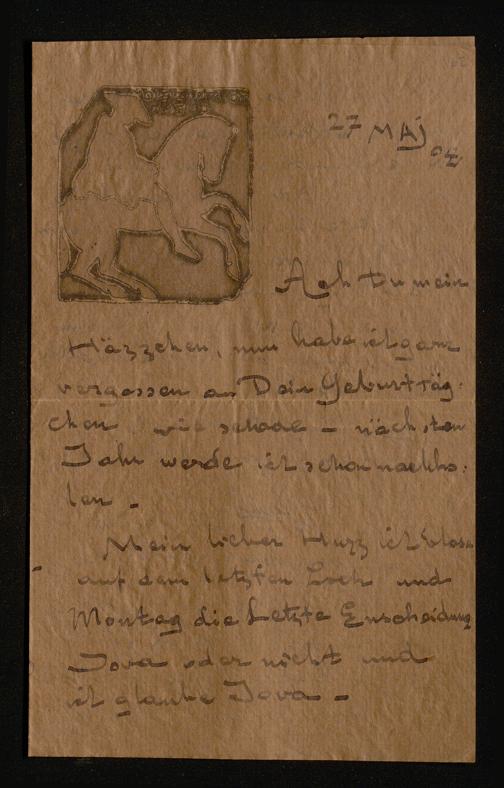 27 MAJ
04
Ach Du mein
Häzzchen, nun habe ich ganz
vergessen an Dein Geburtstäg-
chen wie schade - nächsten
Jahr werde ich schon nachho-
len -
Mein lieber Huzz ich blase
auf dem letzten Loch und
Montag die Letzte Enscheidung
Java oder nicht und
ich glaube Java -